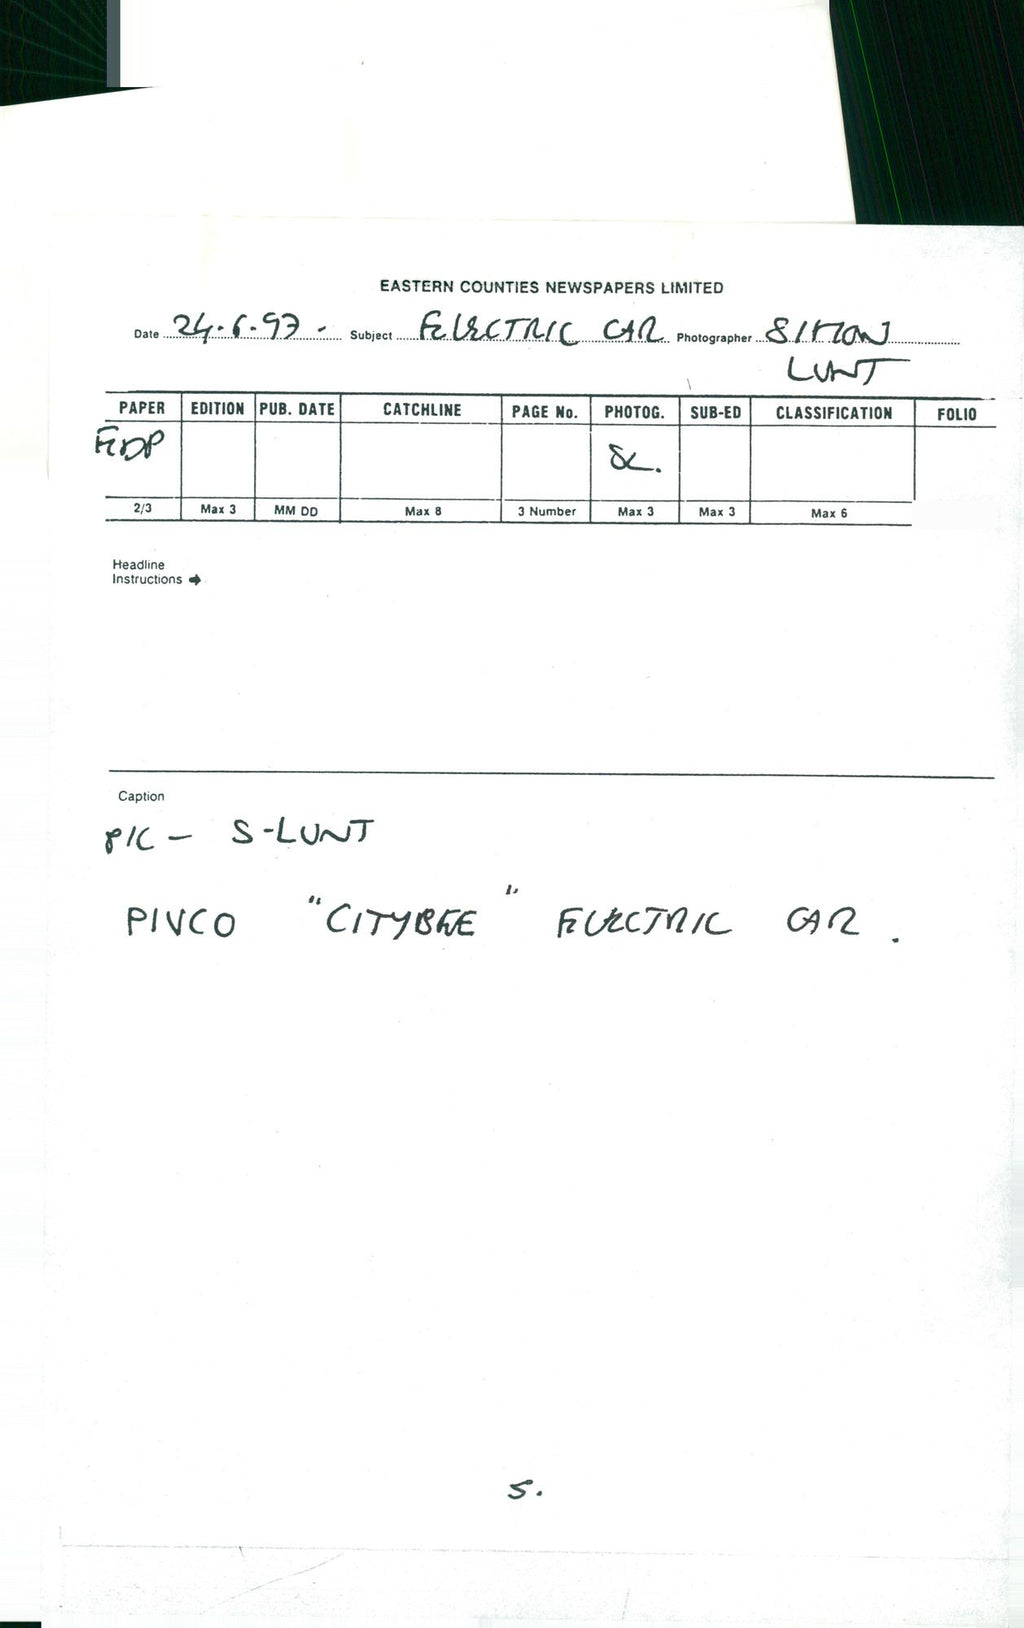 EASTERN COUNTIES NEWSPAPERS LIMITED
Date 24.6.97. Subject ELECTRIC CAR Photographer SIMON
LUNT
PAPER EDITION PUB. DATE CATCHLINE PAGE No. PHOTOG. SUB-ED CLASSIFICATION FOLIO
EDP SL.
2/3 Max 3 MM DD Max 8 3 Number Max 3 Max 3 Max 6
Headline
Instructions ➔
Caption
PIC - S-LUNT
PIVCO "CITYBEE" ELECTRIC CAR.
5.